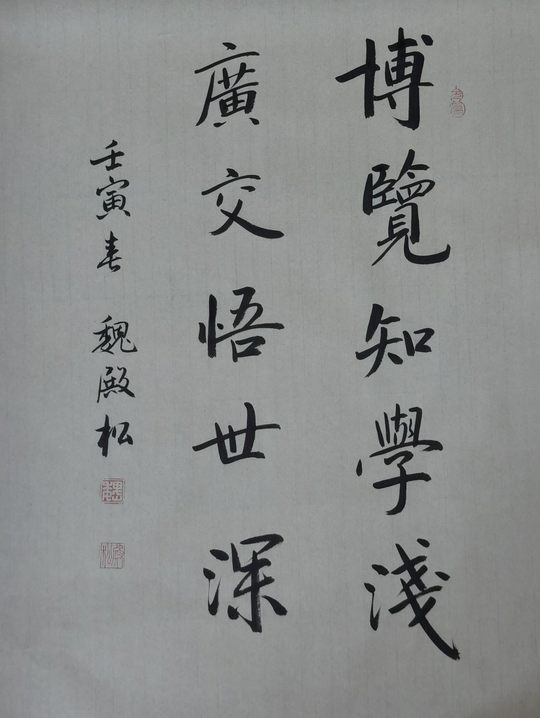 博覽知學淺
廣交悟世深
壬寅春 魏殿松